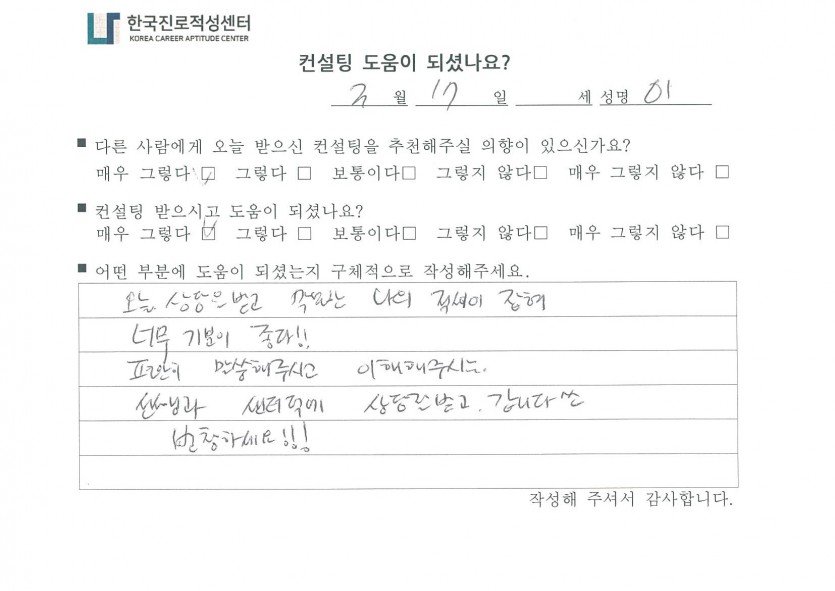 한국진로적성센터
KOREA CAREER APTITUDE CENTER
컨설팅 도움이 되셨나요?
3 월 17 일 세 성명 이
■ 다른 사람에게 오늘 받으신 컨설팅을 추천해주실 의향이 있으신가요?
매우 그렇다 ☑ 그렇다 □ 보통이다□ 그렇지 않다□ 매우 그렇지 않다 □
■ 컨설팅 받으시고 도움이 되셨나요?
매우 그렇다 ☑ 그렇다 □ 보통이다□ 그렇지 않다□ 매우 그렇지 않다 □
■ 어떤 부분에 도움이 되셨는지 구체적으로 작성해주세요.
오늘 상담을 받고 나의 적성이
너무 기분이 좋다!!
말씀해주시고 이해해주시는.
선생님과 센터덕에 상담잘받고. 갑니다
번창하세요!!!
작성해 주셔서 감사합니다.